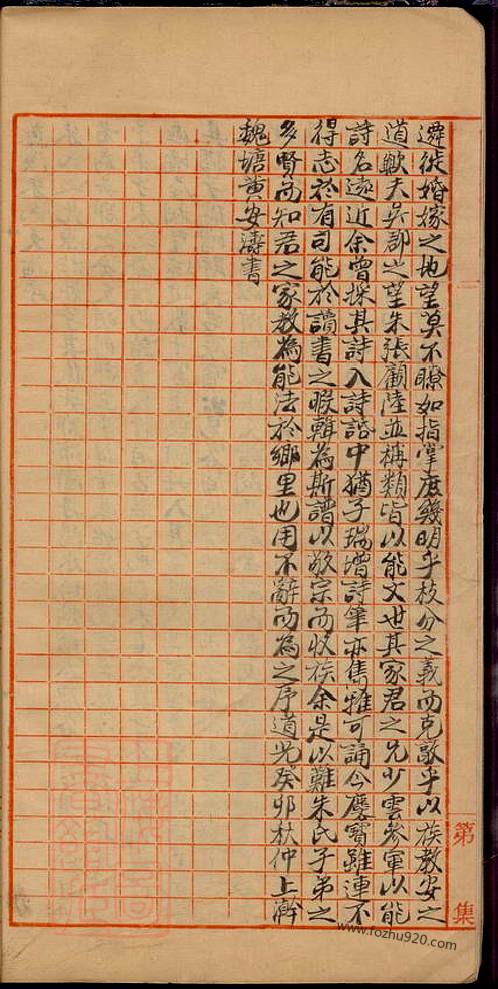 遷徙婚嫁之地望莫不瞭如指掌庶幾明乎枝分之義而克敦乎以族教安之
道歟夫吳郡之望朱張顧陸並稱類皆以能文世其家君之兄少雲參軍以能
詩名遠近余曾採其詩入詩話中猶子瑞增詩筆亦雋雅可誦今塵寶雖連不
得志於有司能於讀書之暇輯為斯譜以敬宗而收族余是以難朱氏子弟之
多賢而知君之家教為能法於鄉里也用不辭而為之序道光癸卯杖仲上澣
魏塘黃安濤書
第
集
www.fozhu920.com